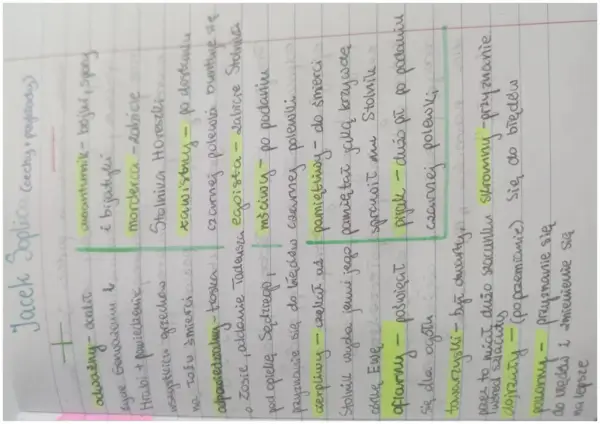 Jacek Soplica (cechy + przykłady)
+
odważny - ocalił
życie Gerwazemu i
Hrabi + powiedzenie
wszystkich grzechów
na łożu śmierci
odpowiedzialny - troska
o Zosię, oddanie Tadeusza
pod opiekę Sędziego,
przyznanie się do błędów
cierpliwy - czekał aż
Stolnik wyda jemu jego
córkę Ewę
ofiarny - poświęcił
się dla ogółu
towarzyski - był otwarty
przez to miał dużo szacunku
wśród szlachty
dojrzały - (po przemianie)
pokorny - przyznanie się
do błędów i zmienienie się
na lepsze
-
awanturnik - bójki, spory
i bijatyki
morderca - zabicie
Stolnika Horeszki
zawistny - po dostaniu
czarnej polewki buntuje się
egoista - zabicie Stolnika
mściwy - po podaniu
czarnej polewki
pamiętliwy - do śmierci
pamiętał jaką krzywdę
sprawił mu Stolnik
pijak - dużo pił po podaniu
czarnej polewki
skromny - przyznanie
się do błędów